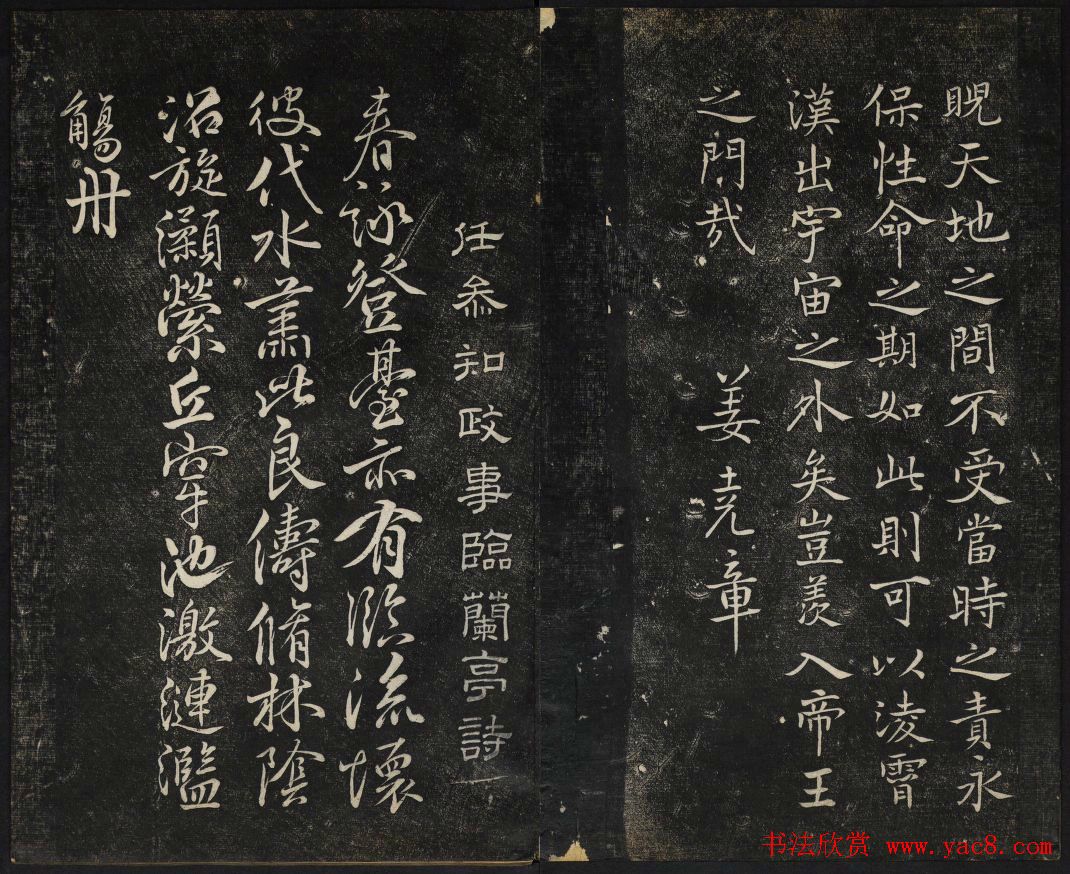 睨天地之間不受當時之責永
保性命之期如此則可以凌霄
漢出宇宙之外矣豈羨入帝王
之門哉 姜堯章
任叅知政事臨蘭亭詩
春詠登臺亦有臨流懷
彼伐木肅此良儔脩林陰
沼旋瀨縈丘穿池激連濫
觴舟
书法欣赏 www.yac8.com